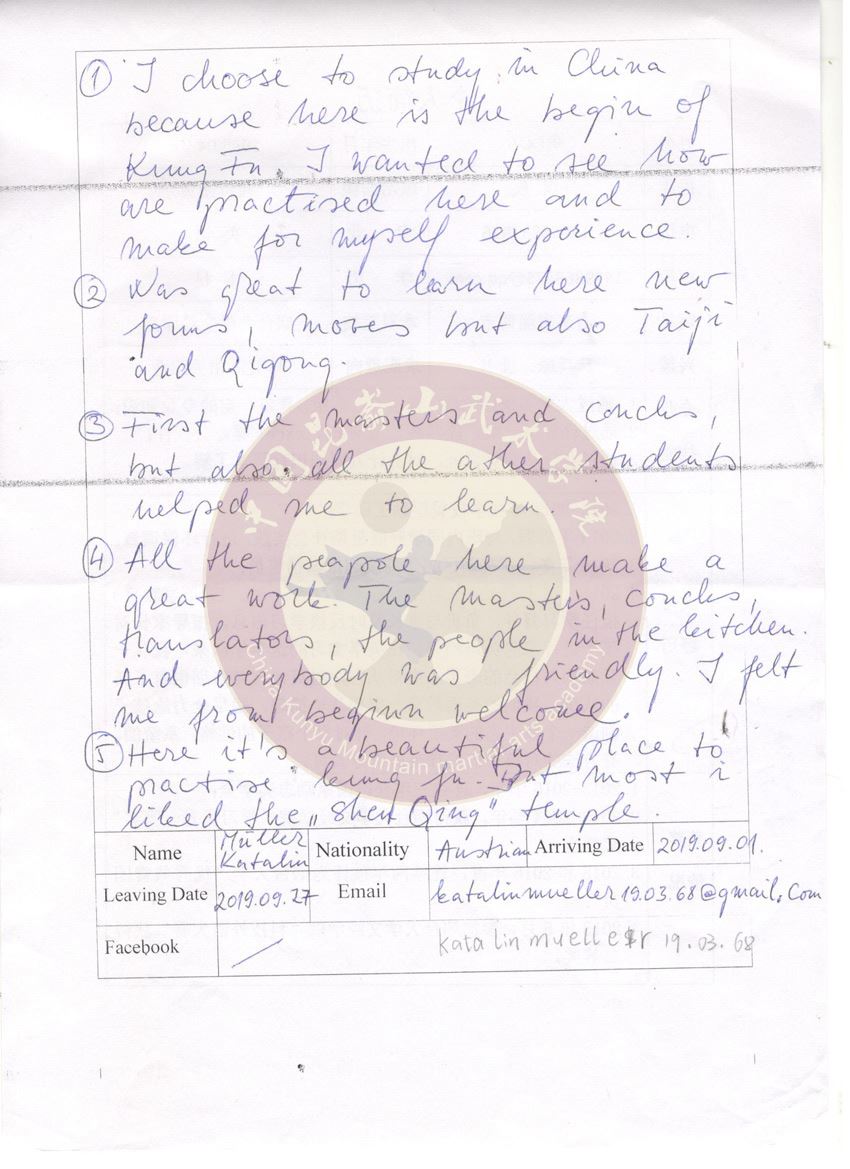 ① I choose to study in China
because here is the begin of
Kung Fu. I wanted to see how
are practised here and to
make for myself experience.
② Was great to learn here new
forms, moves but also Taiji
and Qigong.
③ First the masters and conchs,
but also all the ather students
helped me to learn.
④ All the peapole here make a
great work. The masters, conchs,
translators, the people in the kitchen.
And everybody was friendly. I felt
me from beginn welcomee.
⑤ Here it's a beautiful place to
practise kung fu. But most i
liked the „Shen Qing" temple.
中国昆嵛山武术学院
China Kunyu Mountain martial arts academy
Name Müller Katalin Nationality Austrian Arriving Date 2019.09.01.
Leaving Date 2019.09.27 Email katalinmueller19.03.68@gmail.com
Facebook katalinmueller 19.03.68